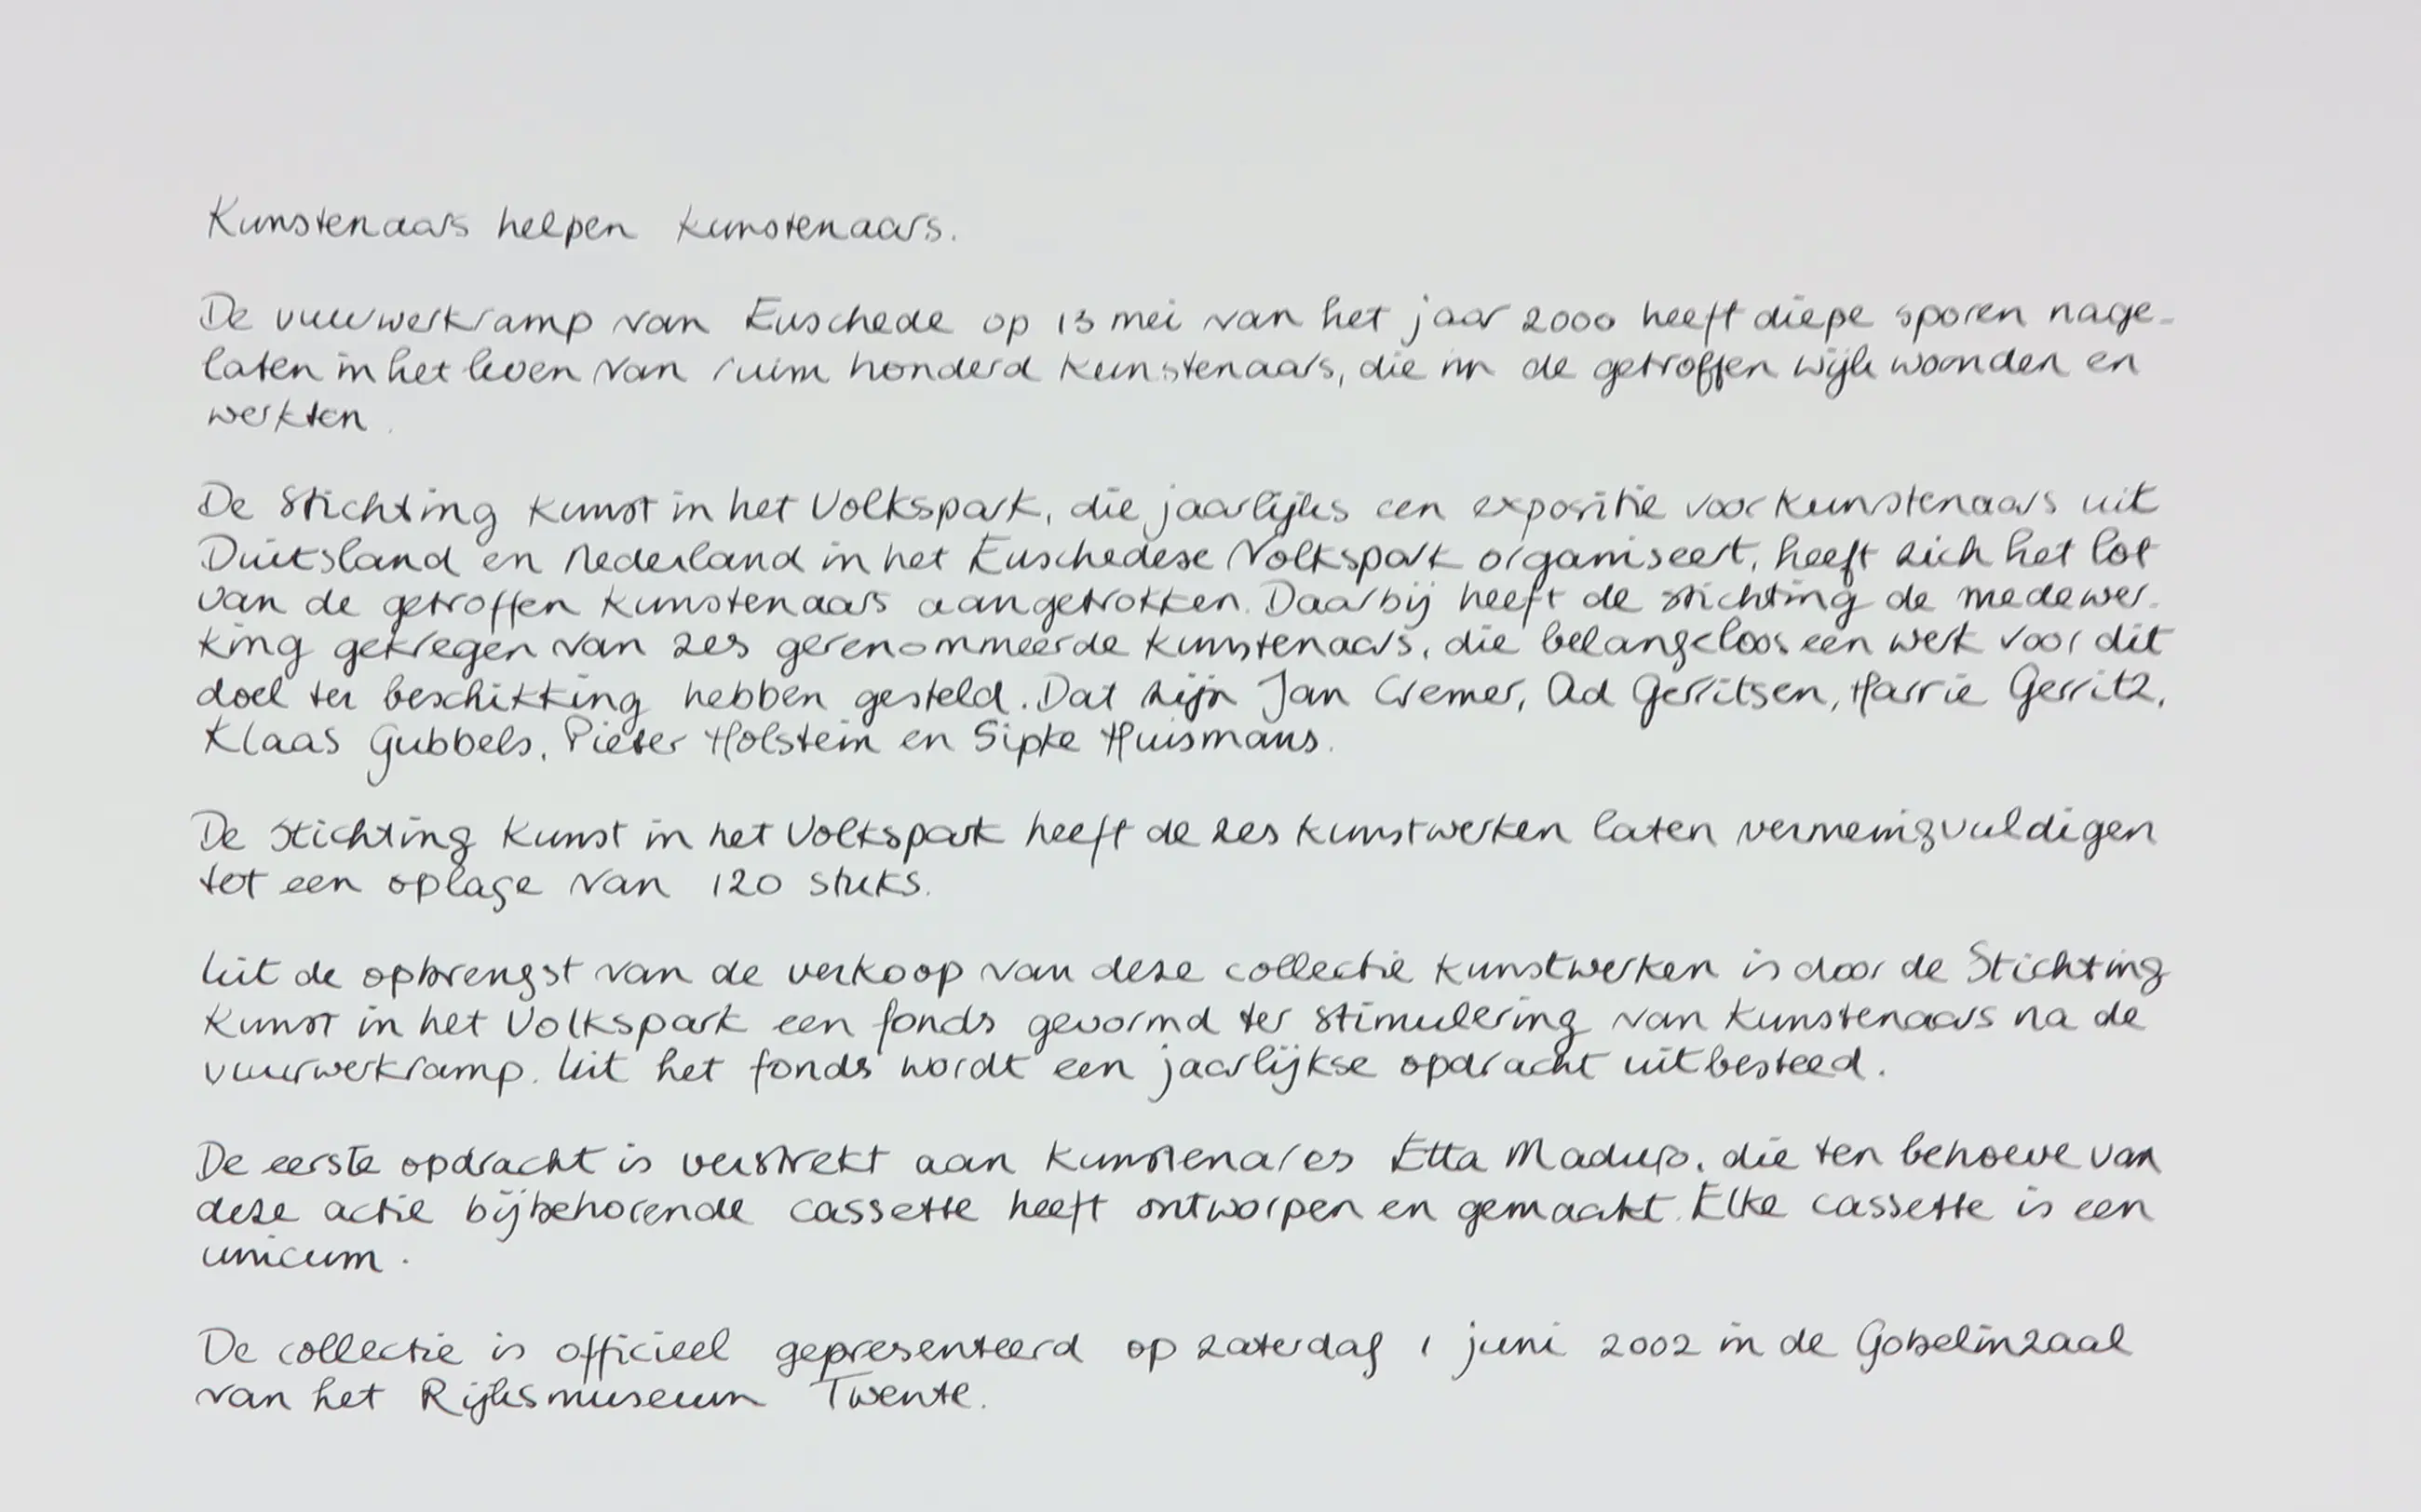 Kunstenaars helpen kunstenaars.
De vuurwerkramp van Enschede op 13 mei van het jaar 2000 heeft diepe sporen nage-
laten in het leven van ruim honderd kunstenaars, die in de getroffen wijk woonden en
werkten.
De Stichting Kunst in het Volkspark, die jaarlijks een expositie voor kunstenaars uit
Duitsland en Nederland in het Enschedese Volkspark organiseert, heeft zich het lot
van de getroffen kunstenaars aangetrokken. Daarbij heeft de stichting de medewer-
king gekregen van zes gerenommeerde kunstenaars, die belangeloos een werk voor dit
doel ter beschikking hebben gesteld. Dat zijn Jan Cremer, Ad Gerritsen, Harrie Gerritz,
Klaas Gubbels, Pieter Holstein en Sipke Huismans.
De Stichting Kunst in het Volkspark heeft de zes kunstwerken laten vermenigvuldigen
tot een oplage van 120 stuks.
Uit de opbrengst van de verkoop van deze collectie kunstwerken is door de Stichting
Kunst in het Volkspark een fonds gevormd ter stimulering van kunstenaars na de
vuurwerkramp. Uit het fonds wordt een jaarlijkse opdracht uitbesteed.
De eerste opdracht is verstrekt aan kunstenares Etta Maduro, die ten behoeve van
deze actie bijbehorende cassette heeft ontworpen en gemaakt. Elke cassette is een
unicum.
De collectie is officieel gepresenteerd op zaterdag 1 juni 2002 in de Gobelinzaal
van het Rijksmuseum Twente.